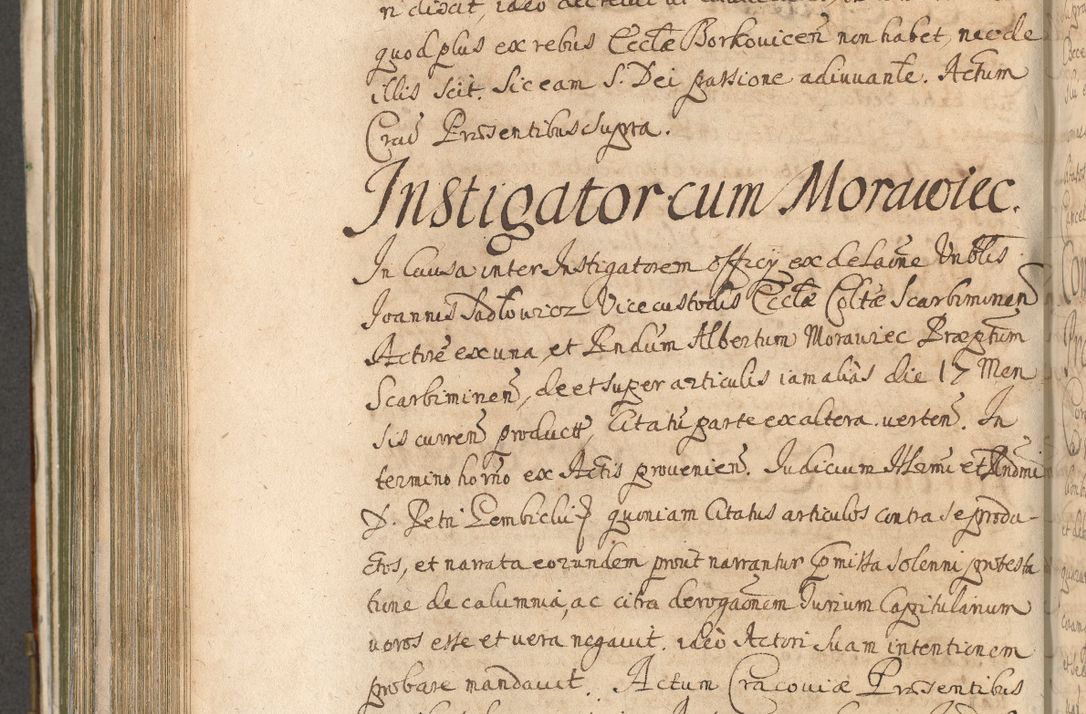 quod plus ex rebus Ecclæ Borkovicen̄ non habet, nec de
illis scit. Sic eam S. Dei passione adiuuante. Actum
Crac̄ Præsentibus supra.
Instigator cum Morawiec.
In Causa inter Instigatorem officij ex delaōne Vnblis
Joannis Sadłowicz Vicecustodis Ecclæ Coltæ Scarbimiren̄
Actorē ex una, et Rendūm Albertum Morawiec Præptūm
Scarbimiren̄, de et super articulis iam aliàs die 17 Men
sis curren̄ product, Citatū parte ex altera verten̄. In
termino horno ex Actis provenien̄. Judicium Illrmi et Rndmi
D. Petri Gembicki quoniam Citatus articulos contra se produ-
ctos, et narrata eorundem prout narrantur præmissa solenni protesta
tione de calumnia, ac citra derogaōnem Jurium Capitularium
veros esse et vera negavit. ideò Actori suam intentionem
probare mandavit. Actum Cracoviæ Præsentibus